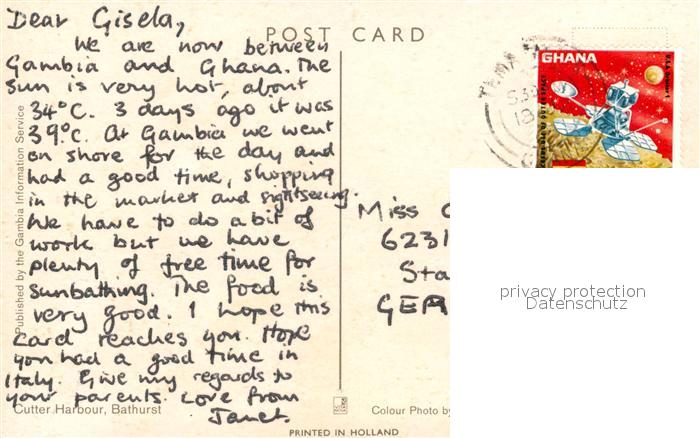 Dear Gisela,
We are now between
Gambia and Ghana. The
sun is very hot, about
34°C. 3 days ago it was
39°C. At Gambia we went
on shore for the day and
had a good time, shopping
in the market and sightseeing.
We have to do a bit of
work but we have
plenty of free time for
sunbathing. The food is
very good. I hope this
card reaches you. Hope
you had a good time in
Italy. Give my regards to
your parents. Love from
Janet.
POST CARD
Published by the Gambia Information Service
Cutter Harbour, Bathurst
PRINTED IN HOLLAND
Colour Photo by
GHANA
Miss G
6231
Sta
GER
privacy protection
Datenschutz